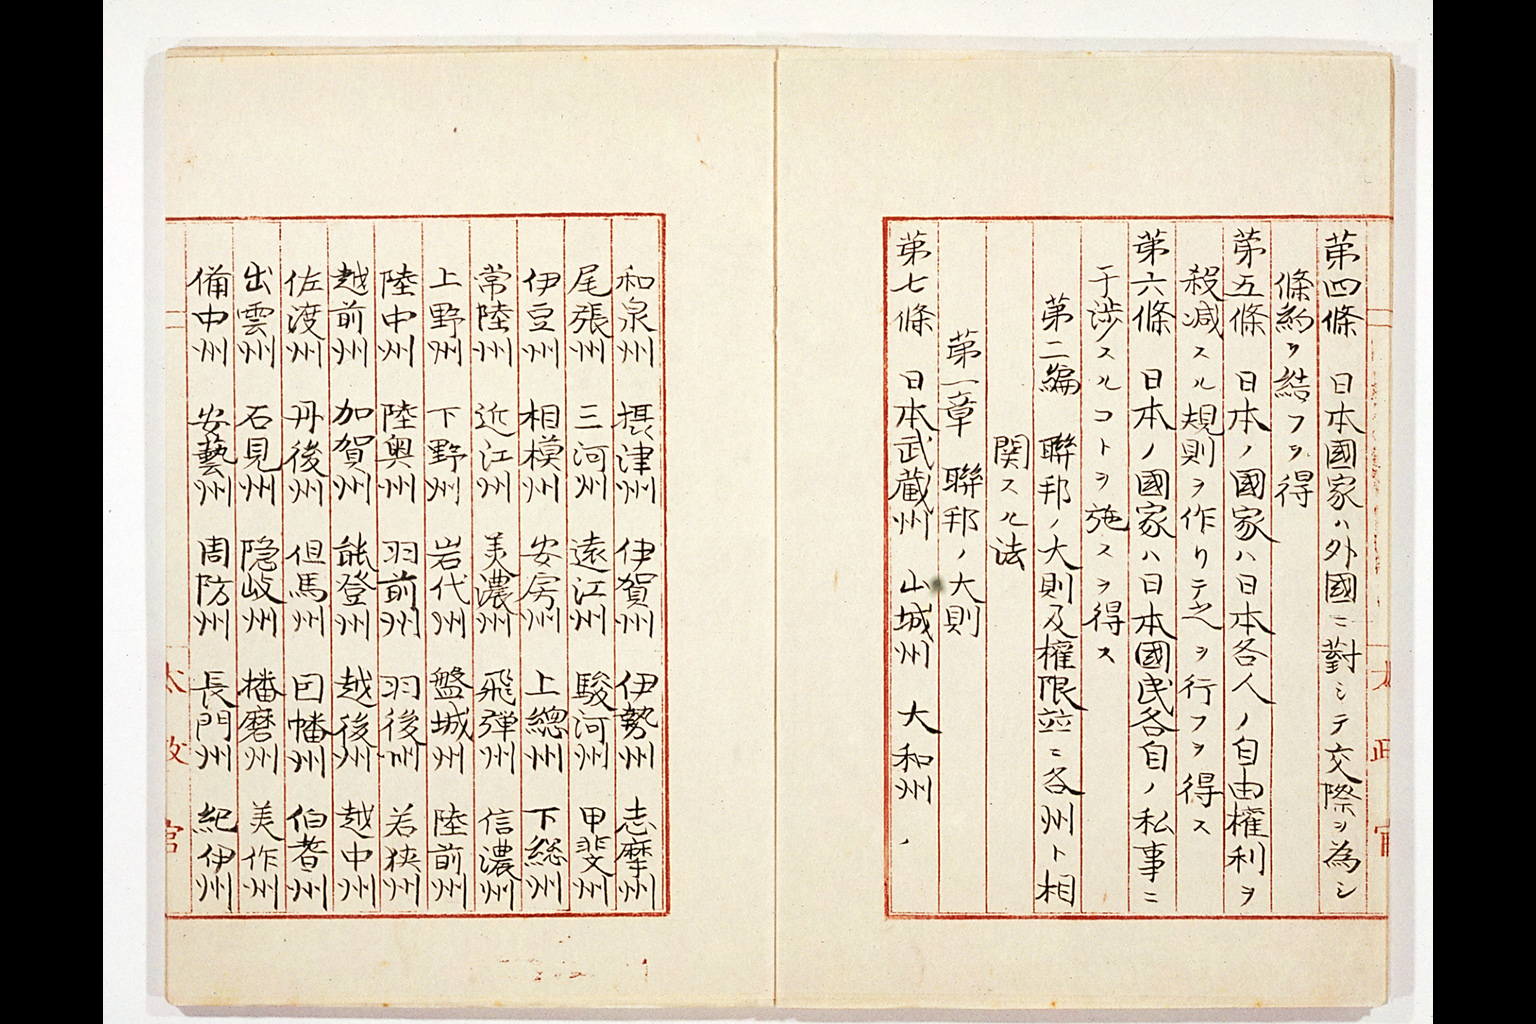 第四條　日本國家ハ外國ニ對シテ交際ヲ為シ
條約ヲ結フヲ得
第五條　日本ノ國家ハ日本各人ノ自由權利ヲ
殺減スル規則ヲ作リテ之ヲ行フヲ得ス
第六條　日本ノ國家ハ日本國民各自ノ私事ニ
干渉スルコトヲ施スヲ得ス
第二編　聯邦ノ大則及權限竝ニ各州ト相
関スル法
第一章　聯邦ノ大則
第七條　日本武蔵州　山城州　大和州
和泉州　摂津州　伊賀州　伊勢州　志摩州
尾張州　三河州　遠江州　駿河州　甲斐州
伊豆州　相模州　安房州　上總州　下総州
常陸州　近江州　美濃州　飛弾州　信濃州
上野州　下野州　岩代州　盤城州　陸前州
陸中州　陸奥州　羽前州　羽後州　若狭州
越前州　加賀州　能登州　越後州　越中州
佐渡州　丹後州　但馬州　因幡州　伯耆州
出雲州　石見州　隠岐州　播磨州　美作州
備中州　安藝州　周防州　長門州　紀伊州
太政官